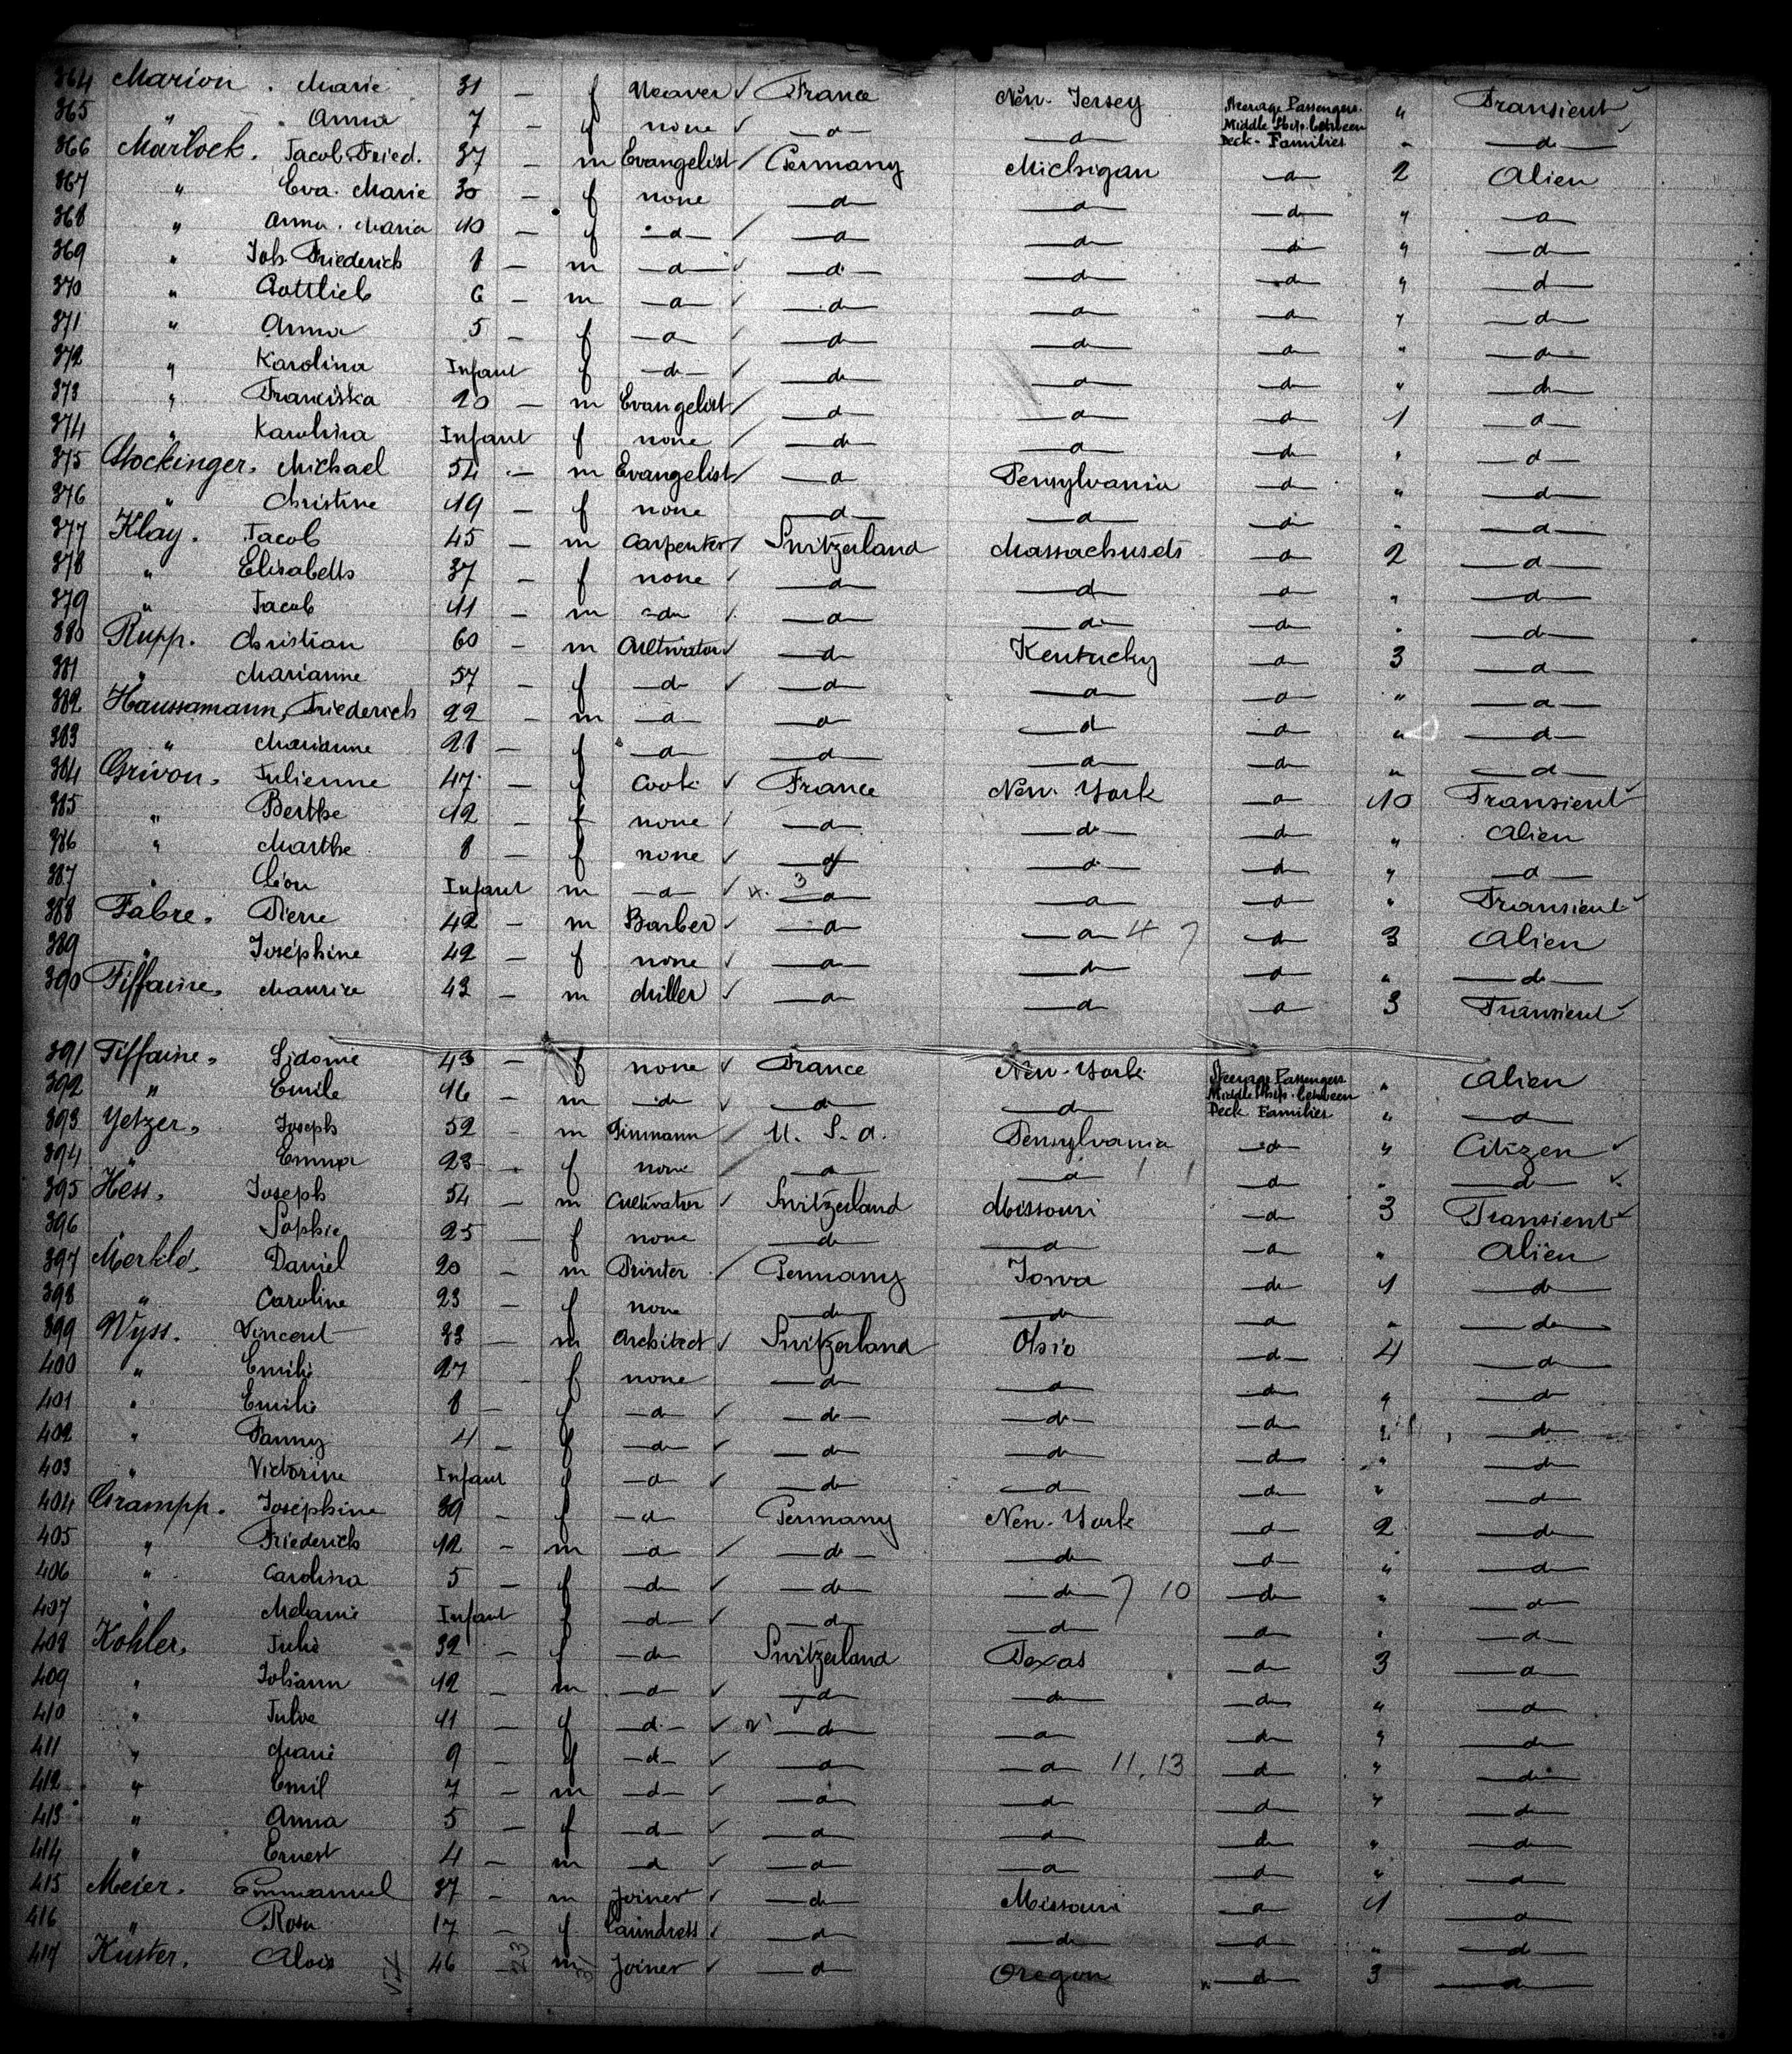 364 Marion. Marie 31 – f Weaver ✓ France New-Jersey Steerage Passengers. Middle Ship. between Deck. Families " Transient ✓
365 " . Anna 7 – f none ✓ –d– –d– " –d– ✓
366 Marlock. Jacob Fried. 37 – m Evangelist ✓ Germany Michigan –d– 2 Alien
367 " Eva. Marie 30 – f none –d– –d– –d– " –d–
368 " Anna. Maria 10 – f –d– ✓ –d– –d– –d– " –d–
369 " Joh. Friederich 8 – m –d– ✓ –d– –d– –d– " –d–
370 " Gottlieb 6 – m –d– ✓ –d– –d– –d– " –d–
371 " Anna 5 – f –d– ✓ –d– –d– –d– " –d–
372 " Karolina Infant f –d– ✓ –d– –d– –d– " –d–
373 " Franciska 20 – m Evangelist ✓ –d– –d– –d– 1 –d–
374 " Karolina Infant f none ✓ –d– –d– –d– " –d–
375 Stockinger. Michael 54 – m Evangelist ✓ –d– Pensylvania –d– " –d–
376 " Christine 19 – f none –d– –d– –d– " –d–
377 Klay. Jacob 45 – m Carpenter ✓ Switzerland Massachusets –d– 2 –d–
378 " Elisabeth 37 – f none ✓ –d– –d– –d– " –d–
379 " Jacob 11 – m –d– ✓ –d– –d– –d– " –d–
380 Rupp. Christian 60 – m Cultivator ✓ –d– Kentucky –d– 3 –d–
381 " Marianne 57 – f –d– ✓ –d– –d– –d– " –d–
382 Haussamann, Friederich 22 – m –d– –d– –d– –d– " –d–
383 " Marianne 21 – f –d– –d– –d– –d– " –d–
384 Grivon. Julienne 47 – f Cook ✓ France New-York –d– 10 Transient ✓
385 " Berthe 12 – f none ✓ –d– –d– –d– " Alien
386 " Marthe 8 – f none ✓ –d– –d– –d– " –d–
387 " Léon Infant m –d– ✓ 3 –d– –d– –d– " Transient ✓
388 Fabre. Pierre 42 – m Barber ✓ –d– –d– 4 7 –d– 3 Alien
389 " Joséphine 42 – f none ✓ –d– –d– –d– " –d–
390 Tiffaine, Maurice 43 – m Miller ✓ –d– –d– –d– 3 Transient ✓
391 Tiffaine, Sidonie 43 – f none ✓ France New-York Steerage Passengers Middle Ship. between Deck Families " Alien
392 " Emile 16 – m –d– ✓ –d– –d– " –d–
393 Yetzer, Joseph 52 – m ✓ U. S. a. Pensylvania –d– " Citizen ✓
394 " Emma 23 – f none ✓ –d– –d– 1 1 –d– " –d– ✓
395 Hess, Joseph 54 – m Cultivator ✓ Switzerland Missouri –d– 3 Transient ✓
396 Sophie 25 – f none –d– –d– –d– " Alien
397 Merklé, Daniel 20 – m Printer ✓ Germany Iowa –d– 1 –d–
398 " Caroline 23 – f none –d– –d– –d– " –d–
399 Wyss. Vincent 33 – m Architect ✓ Switzerland Ohio –d– 4 –d–
400 " Emilie 27 f none –d– –d– –d– " –d–
401 " Emilie 8 – f –d– ✓ –d– –d– –d– " –d–
402 " Fanny 4 – f –d– ✓ –d– –d– –d– " –d–
403 " Victorine Infant f –d– ✓ –d– –d– –d– " –d–
404 Grampp. Joséphine 39 – f –d– Germany New-York –d– 2 –d–
405 " Friederich 12 – m –d– ✓ –d– –d– –d– " –d–
406 " Carolina 5 – f –d– ✓ –d– –d– 7 10 –d– " –d–
407 " Melanie Infant f –d– ✓ –d– –d– –d– " –d–
408 Kohler, Julie 32 – f –d– Switzerland Texas –d– 3 –d–
409 " Johann 12 – m –d– ✓ –d– –d– –d– " –d–
410 " 11 – f –d– ✓ –d– –d– –d– " –d–
411 " Marie 9 – f –d– ✓ –d– –d– 11, 13 –d– " –d–
412 " Emil 7 – m –d– ✓ –d– –d– –d– " –d–
413 " Anna 5 – f –d– ✓ –d– –d– –d– " –d–
414 " Ernest 4 – m –d– ✓ –d– –d– –d– " –d–
415 Meier. Emmanuel 37 – m Joiner ✓ –d– Missouri –d– 1 –d–
416 " Rosa 17 – f Laundress ✓ –d– –d– –d– " –d–
417 Küster. Alois 46 – 23 m 31 Joiner ✓ –d– Oregon –d– 3 –d–